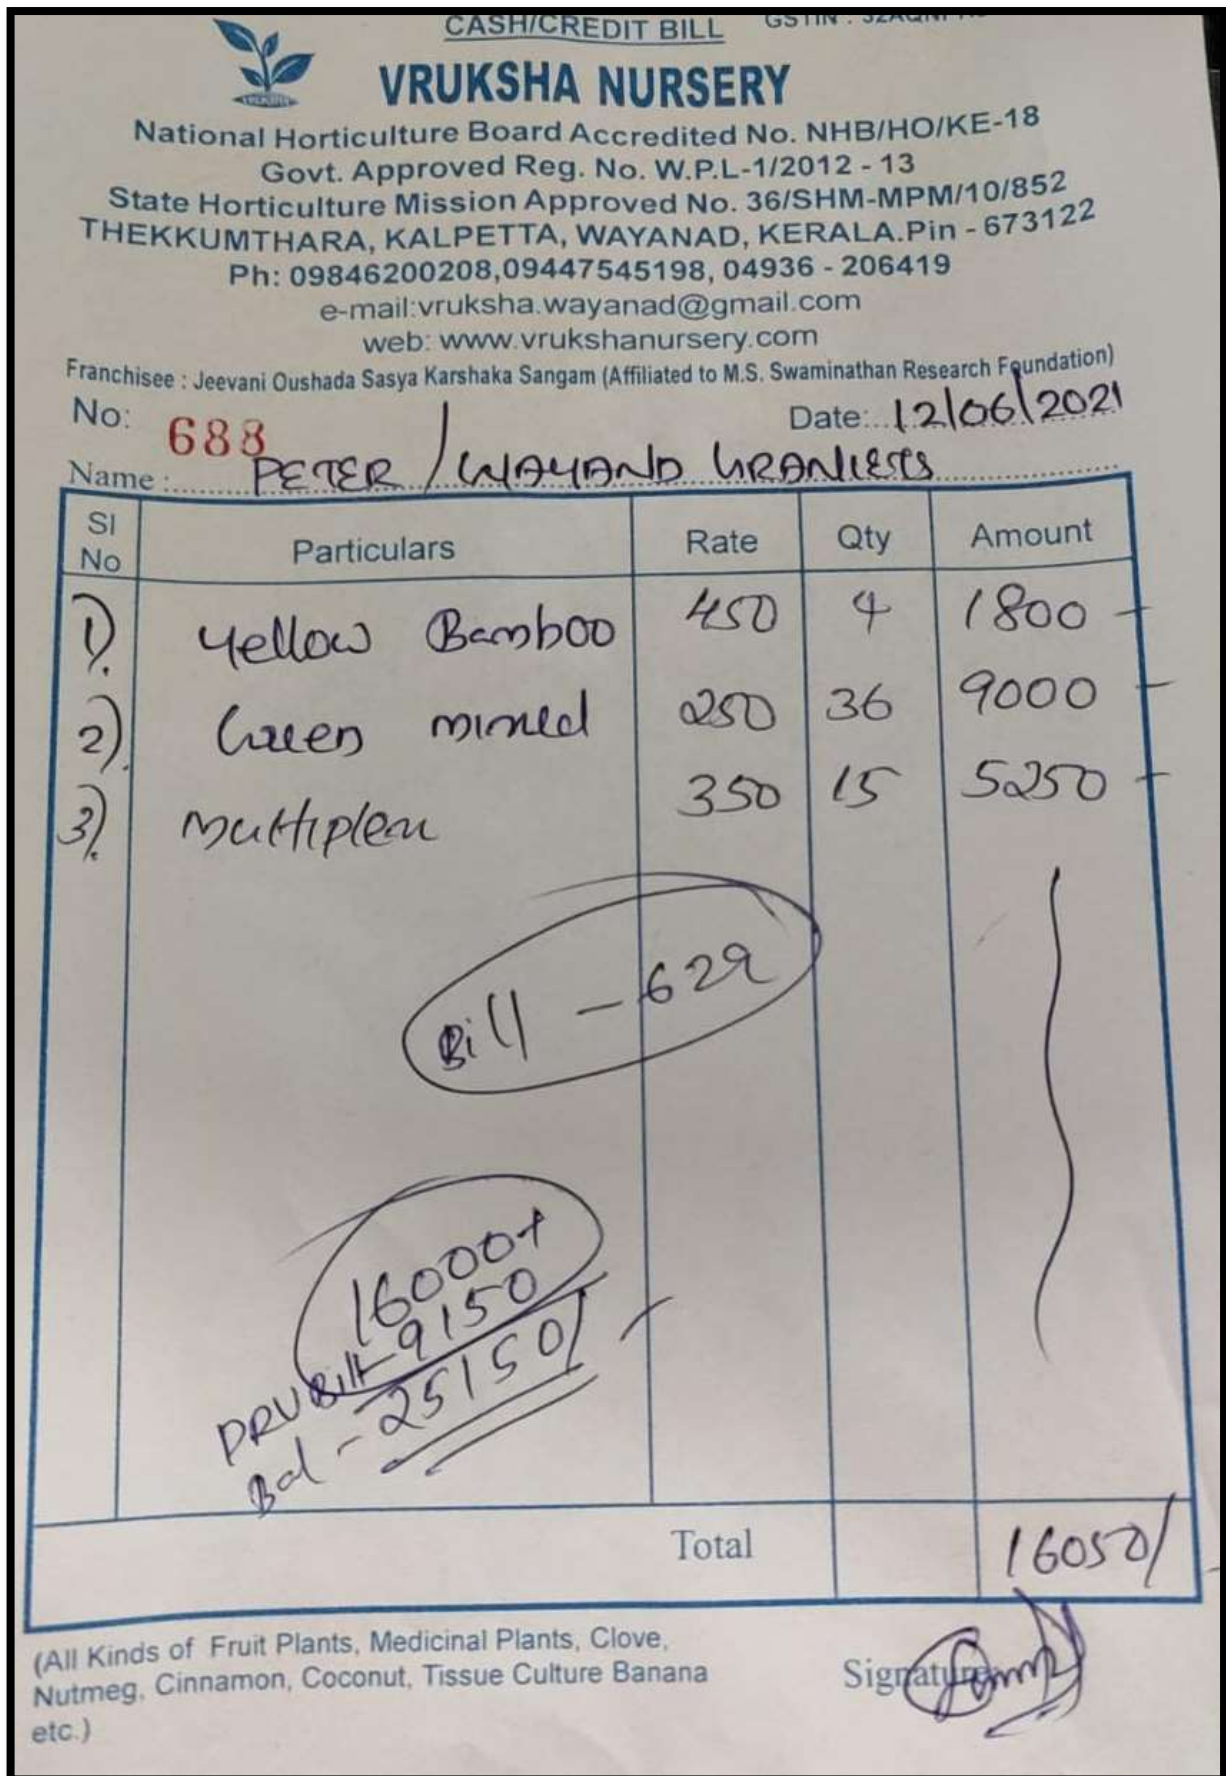 CASH/CREDIT BILL GSTIN :
VRUKSHA
VRUKSHA NURSERY
National Horticulture Board Accredited No. NHB/HO/KE-18
Govt. Approved Reg. No. W.P.L-1/2012 - 13
State Horticulture Mission Approved No. 36/SHM-MPM/10/852
THEKKUMTHARA, KALPETTA, WAYANAD, KERALA.Pin - 673122
Ph: 09846200208,09447545198, 04936 - 206419
e-mail:vruksha.wayanad@gmail.com
web: www.vrukshanursery.com
Franchisee : Jeevani Oushada Sasya Karshaka Sangam (Affiliated to M.S. Swaminathan Research Foundation)
No: 688 Date: 12/06/2021
Name : PETER / WAYAND
Sl No Particulars Rate Qty Amount
1) Yellow Bamboo 450 4 1800 -
2) Green 250 36 9000 -
3) 350 15 5250 -
Bill - 629
16000+
PRV Bill - 9150
Bal - 25150/-
Total 16050/-
(All Kinds of Fruit Plants, Medicinal Plants, Clove,
Nutmeg, Cinnamon, Coconut, Tissue Culture Banana
etc.)
Signature